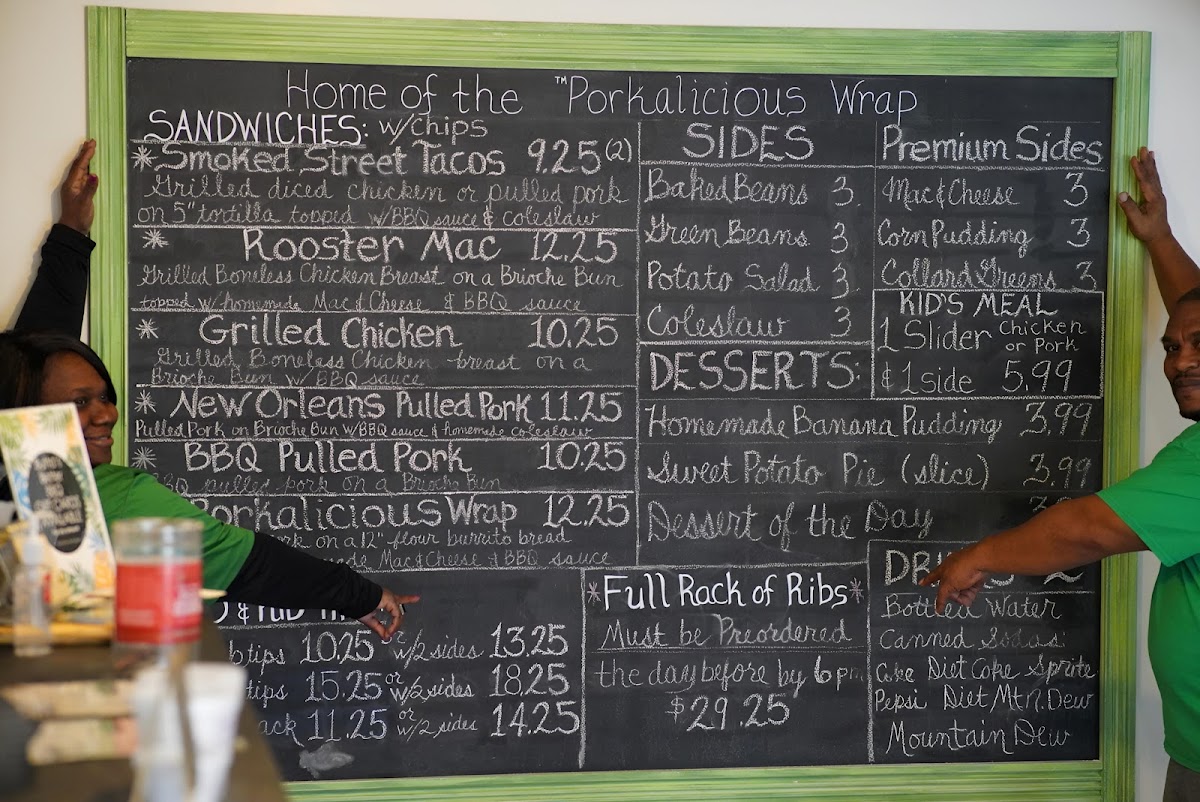 Home of the ™Porkalicious Wrap
SANDWICHES: w/chips
* Smoked Street Tacos 9.25 (2)
Grilled diced chicken or pulled pork
on 5" tortilla topped w/BBQ sauce & coleslaw
* Rooster Mac 12.25
Grilled Boneless Chicken Breast on a Brioche Bun
topped w/ homemade Mac & Cheese & BBQ sauce
* Grilled Chicken 10.25
Grilled Boneless Chicken breast on a
Brioche Bun w/ BBQ sauce
* New Orleans Pulled Pork 11.25
Pulled Pork on Brioche Bun w/BBQ sauce & homemade coleslaw
* BBQ Pulled Pork 10.25
pulled pork on a Brioche Bun
Porkalicious Wrap 12.25
on a 12" flour burrito bread
Mac & Cheese & BBQ sauce
tips 10.25 or w/2 sides 13.25
tips 15.25 or w/2 sides 18.25
11.25 or w/2 sides 14.25
SIDES
Baked Beans 3
Green Beans 3
Potato Salad 3
Coleslaw 3
Premium Sides
Mac & Cheese 3
Corn Pudding 3
Collard Greens 3
KID'S MEAL
1 Slider Chicken or Pork
& 1 side 5.99
DESSERTS:
Homemade Banana Pudding 3.99
Sweet Potato Pie (slice) 3.99
Dessert of the Day
* Full Rack of Ribs *
Must be Preordered
the day before by 6 pm
$29.25
Bottled Water
Canned Sodas:
Coke Diet Coke Sprite
Pepsi Diet Mtn. Dew
Mountain Dew